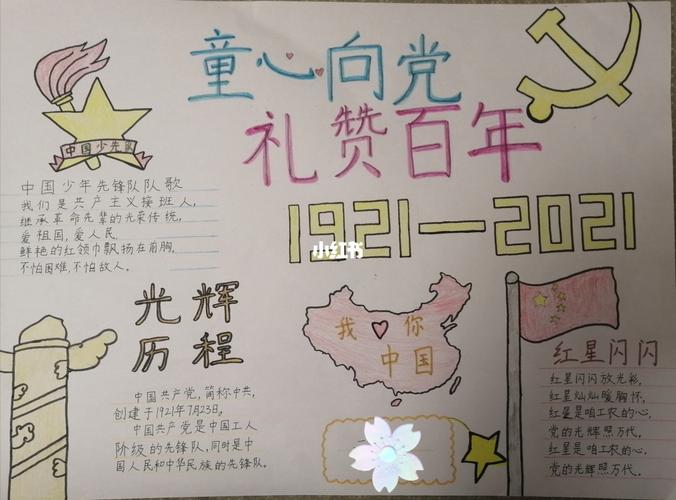 童心向党
礼赞百年
1921—2021
中国少先队
中国少年先锋队队歌
我们是共产主义接班人,
继承革命先辈的光荣传统,
爱祖国,爱人民,
鲜艳的红领巾飘扬在前胸,
不怕困难,不怕敌人。
小红书
光辉
历程
中国共产党,简称中共,
创建于1921年7月23日。
中国共产党是中国工人
阶级的先锋队,同时是中
国人民和中华民族的先锋队。
我你
中国
红星闪闪
红星闪闪放光彩,
红星灿灿暖胸怀,
红星是咱工农的心,
党的光辉照万代。
红星是咱工农的心,
党的光辉照万代。